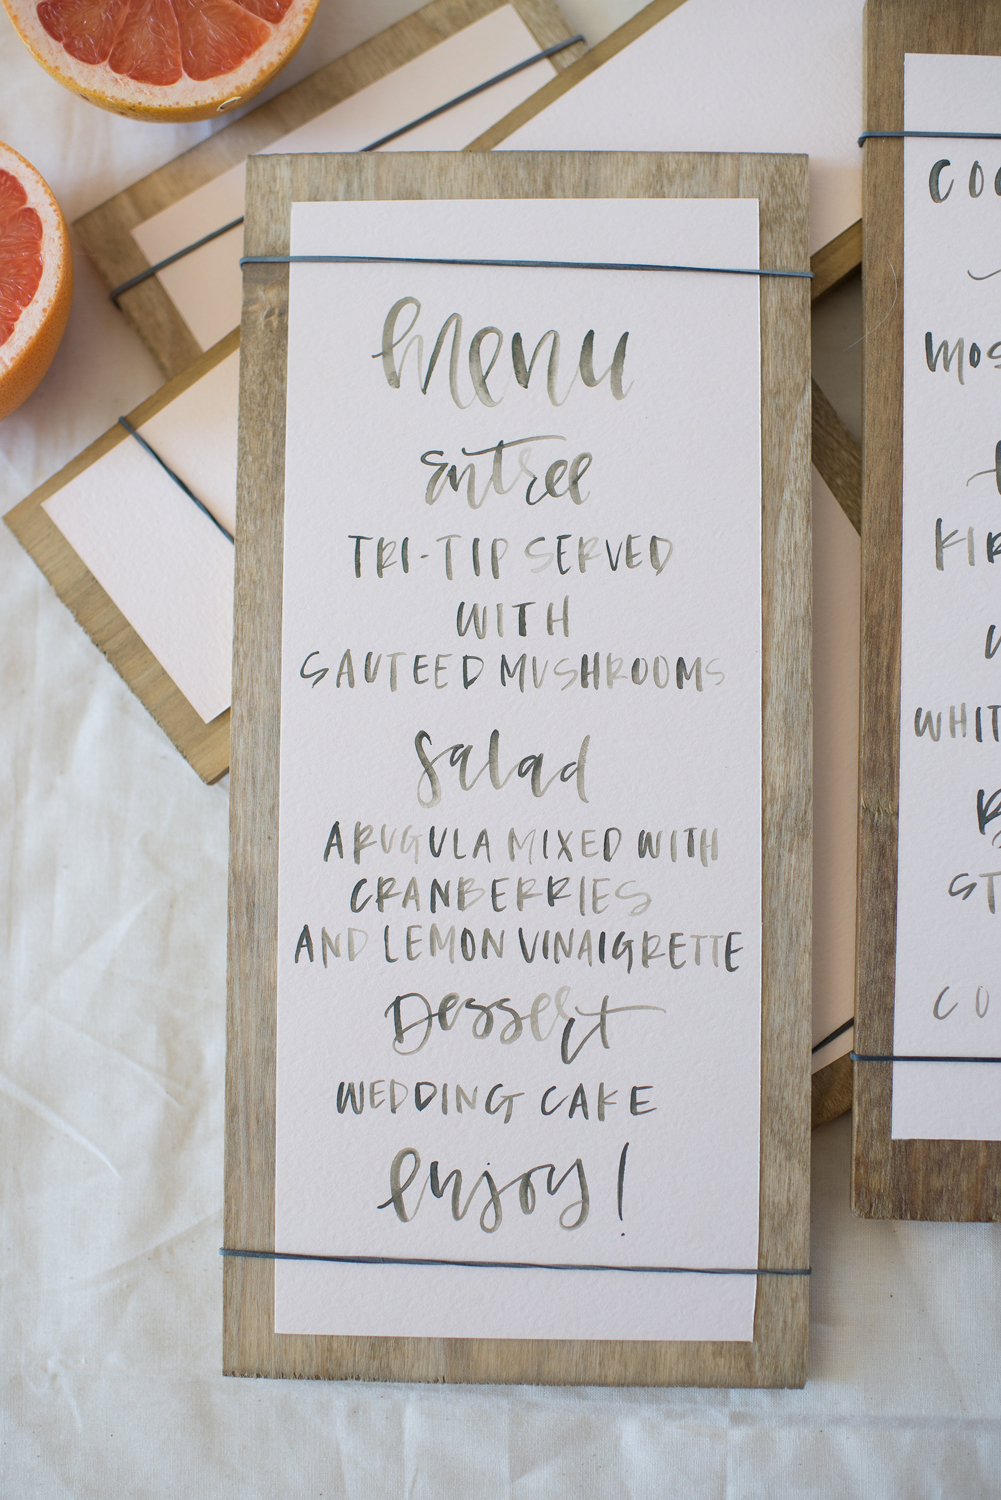 Menu
Entree
TRI-TIP SERVED
WITH
SAUTEED MUSHROOMS
Salad
ARUGULA MIXED WITH
CRANBERRIES
AND LEMON VINAIGRETTE
Dessert
WEDDING CAKE
enjoy!